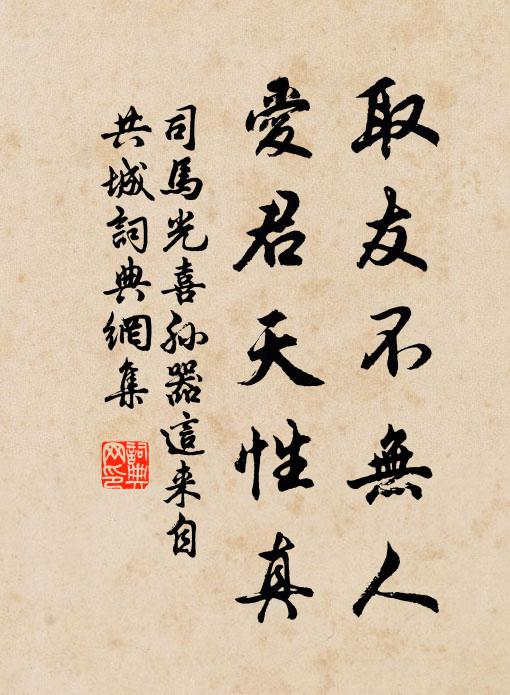 取友不無人
愛君天性真
司馬光喜孫器這来自
共城詞典網集
詞典
网印